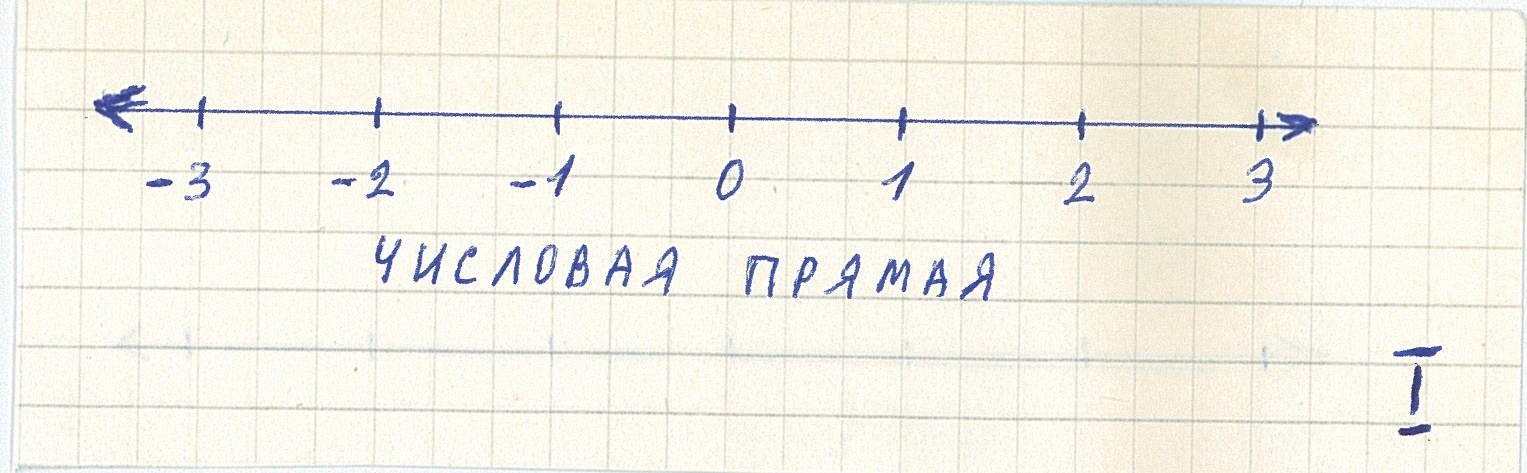 -3 -2 -1 0 1 2 3
ЧИСЛОВАЯ ПРЯМАЯ
I